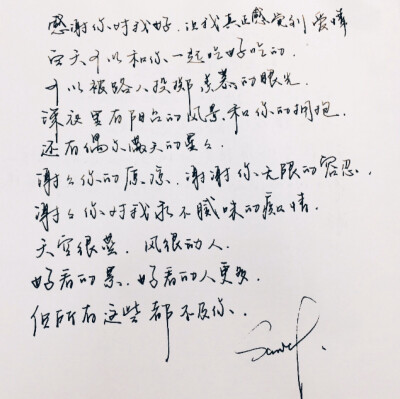 感谢你对我好.让我真正感觉到爱情
白天可以和你一起吃好吃的.
可以被路人投掷羡慕的眼光.
深夜里有阳台的风景.和你的拥抱.
还有偶尔满天的星々
谢々你的原凉.谢谢你无限的容忍.
谢々你对我永不腻味的痴情.
天空很蓝.风很动人.
好看的景.好看的人更多.
但所有这些都不及你.